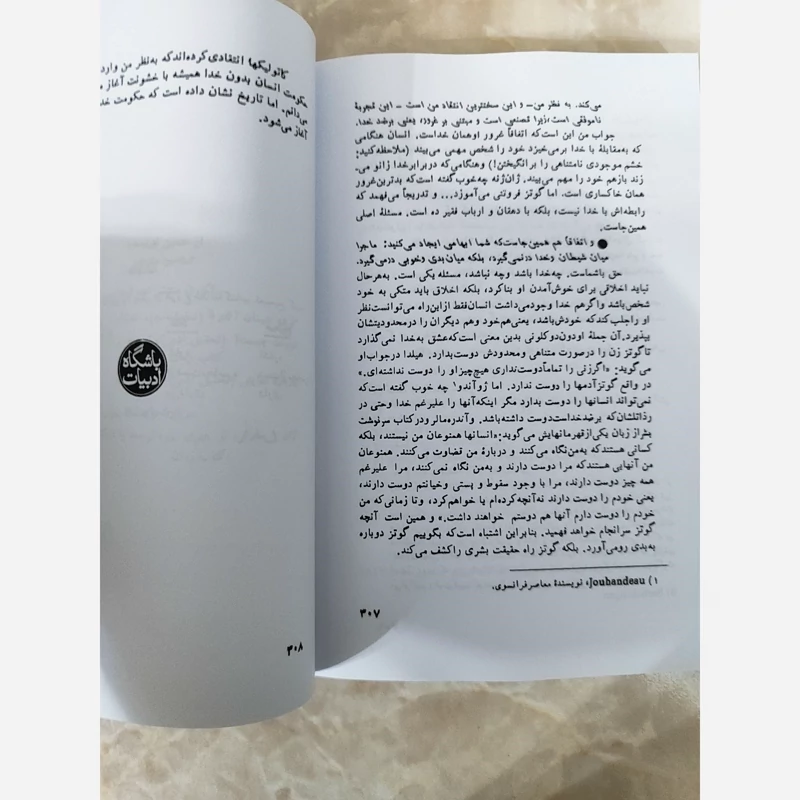 می‌کند. به نظر من– و این سختترین انتقاد من است – این تجربهٔ
ناموفقی است،زیرا تصنعی است و مبتنی بر غرور، یعنی برضد خدا.
جواب من این است‌که اتفاقاً غرور اوهمان خداست. انسان هنگامی
که به‌مقابلهٔ با خدا برمی‌خیزد خود را شخص مهمی می‌بیند (ملاحظه‌کنید:
خشم موجودی نامتناهی را برانگیختن!) وهنگامی‌که دربرابرخدا زانو می‌
زند بازهم خود را مهم می‌بیند. ژان‌ژنه چه‌خوب گفته‌است‌که بدترین‌غرور
همان خاکساری است. اما گوتز فروتنی می‌آموزد... و تدریجاً می‌فهمد که
رابطه‌اش با خدا نیست، بلکه با دهقان و ارباب فقیر ده است. مسئلهٔ اصلی
همین‌جاست.
● و اتفاقاً هم همین‌جاست‌که شما ابهامی ایجاد می‌کنید: ماجرا
میان شیطان وخدا درنمی‌گیرد، بلکه میان‌بدی وخوبی درمی‌گیرد.
حق باشماست. چه‌خدا باشد وچه نباشد، مسئله یکی است. به‌هرحال
نباید اخلاقی برای خوش‌آمدن او بناکرد، بلکه اخلاق باید متکی به خود
شخص‌باشد واگرهم خدا وجودمی‌داشت انسان‌فقط ازاین‌راه می‌توانست‌نظر
او راجلب‌کندکه خودش‌باشد، یعنی‌هم‌خود وهم دیگران را درمحدودیتشان
بپذیرد. آن جملهٔ اودون‌دوکلونی بدین معنی است‌که‌عشق به‌خدا نمی‌گذارد
تاگوتز زن را درصورت متناهی ومحدودش دوست‌بدارد. هیلدا درجواب‌او
می‌گوید: «اگرزنی را تماماًدوست‌نداری هیچ‌چیزاو را دوست نداشته‌ای.»
در واقع گوتزآدمها را دوست ندارد. اما ژوآندو۱ چه خوب گفته است‌که
نمی‌تواند انسانها را دوست بدارد مگر اینکه‌آنها را علیرغم خدا وحتی در
رذالتشان‌که برضدخداست‌دوست داشته‌باشد. وآندره‌مالرو درکتاب سرنوشت
بشراز زبان یکی‌ازقهرمانهایش می‌گوید:«انسانها همنوعان من نیستند، بلکه
کسانی هستندکه به‌من‌نگاه می‌کنند و دربارهٔ من قضاوت می‌کنند. همنوعان
من آنهایی هستندکه مرا دوست دارند و به‌من نگاه نمی‌کنند، مرا علیرغم
همه چیز دوست دارند، مرا با وجود سقوط و پستی وخیانتم دوست دارند،
یعنی خودم را دوست دارند نه‌آنچه‌کرده‌ام یا خواهم‌کرد، وتا زمانی‌که من
خودم را دوست دارم آنها هم دوستم خواهند داشت.» و همین است آنچه
گوتز سرانجام خواهد فهمید. بنابراین اشتباه است‌که بگوییم گوتز دوباره
به‌بدی رومی‌آورد. بلکه گوتز راه حقیقت بشری راکشف می‌کند.
۱) Jouhandeau، نویسندهٔ معاصرفرانسوی.
۳۰۷
کاتولیکها انتقادی‌کرده‌اندکه به‌نظر من وارد
حکومت انسان بدون خدا همیشه با خشونت آغاز
می‌دانم. اما تاریخ نشان داده است که حکومت
آغاز می‌شود.
باشگاه
ادبیات
۳۰۸